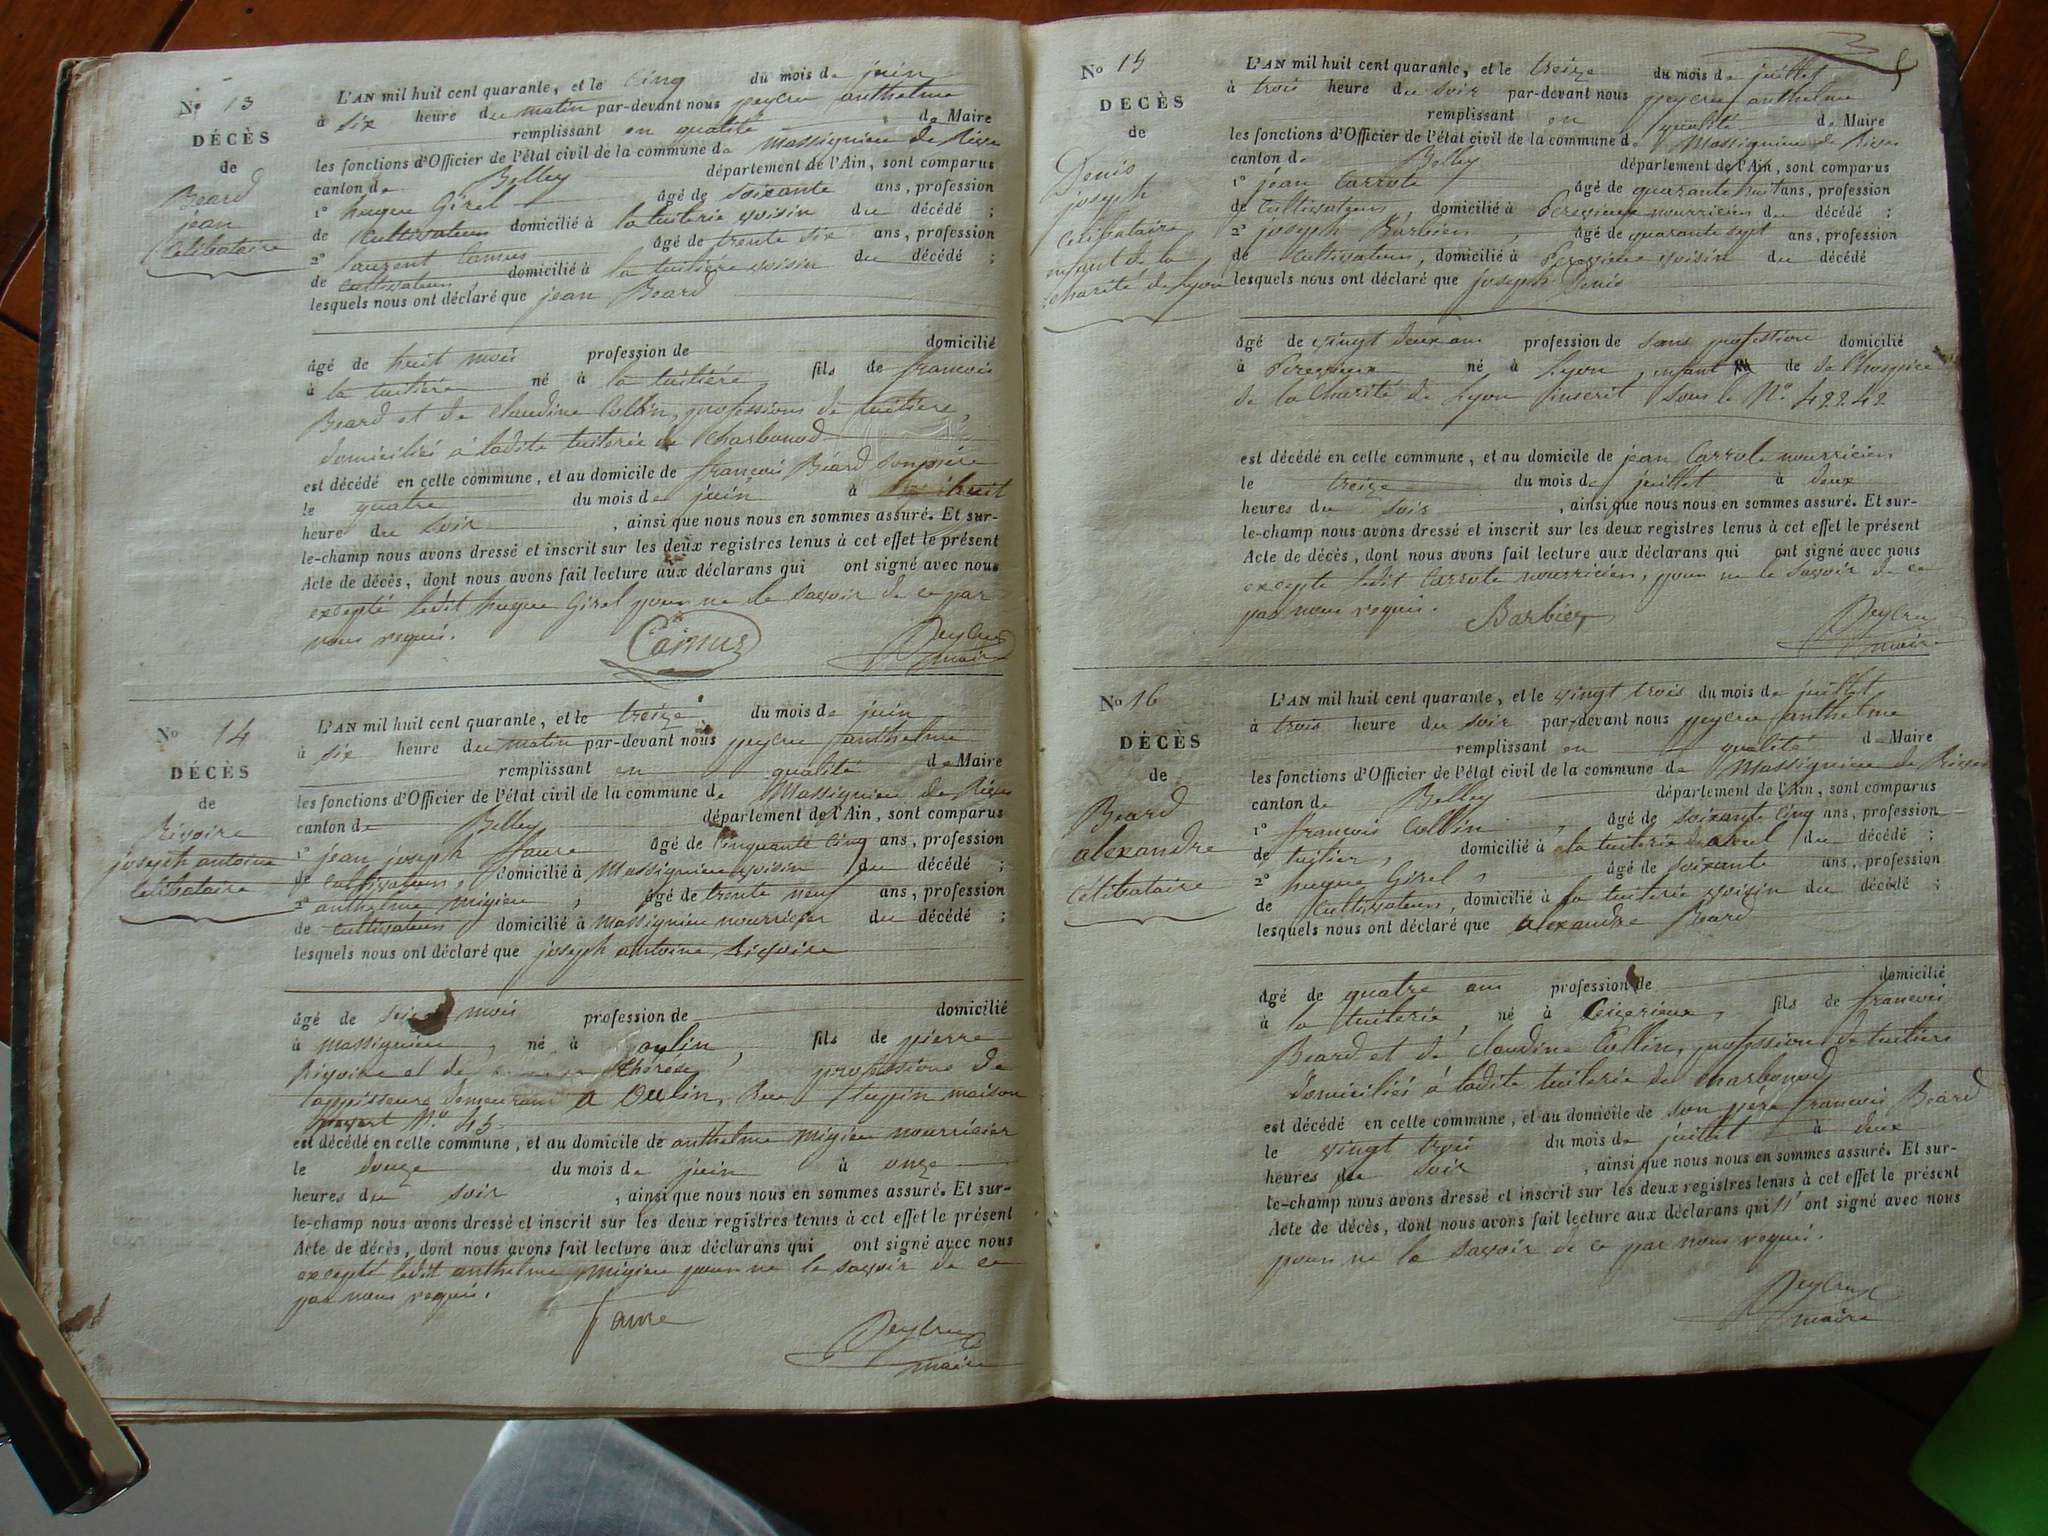 N° 13
DÉCÈS
de
Beard
jean
Célibataire
L'AN mil huit cent quarante, et le cinq du mois de juin
à six heure du matin par-devant nous peycru anthelme
remplissant en qualité de Maire
les fonctions d'Officier de l'état civil de la commune de Massignieu de Rives
canton de Belley département de l'Ain, sont comparus
1° hugue Girel âgé de soixante ans, profession
de Cultivateur domicilié à la tuilerie voisin du décédé ;
2° laurent Camus âgé de trente six ans, profession
de cultivateur domicilié à la tuiliére voisin du décédé ;
lesquels nous ont déclaré que jean Beard
âgé de huit mois profession de domicilié
à la tuiliére né à la tuiliére, fils de francois
Beard et de Claudine Collin, professions de tuiliers,
domiciliés à ladite tuilerie de Charbonod
est décédé en cette commune, et au domicile de francois Béard son père
le quatre du mois de juin à huit
heure du soir, ainsi que nous nous en sommes assuré. Et sur-
le-champ nous avons dressé et inscrit sur les deux registres tenus à cet effet le présent
Acte de décès, dont nous avons fait lecture aux déclarans qui ont signé avec nous
excepté ledit hugue Girel pour ne le savoir de ce par
nous requis.
Camus Peycru
maire
N° 14
DÉCÈS
de
Rivoire
joseph antoine
Celibataire
L'AN mil huit cent quarante, et le treize du mois de juin
à six heure du matin par-devant nous peycru anthelme
remplissant en qualité de Maire
les fonctions d'Officier de l'état civil de la commune de Massignieu de Rives
canton de Belley département de l'Ain, sont comparus
1° jean joseph faure âgé de Cinquante cinq ans, profession
de cultivateur, domicilié à Massignieu voisin du décédé ;
2° anthelme migieu, âgé de trente neuf ans, profession
de cultivateur domicilié à Massignieu nourricier du décédé ;
lesquels nous ont déclaré que joseph antoine Rivoire
âgé de mois profession de domicilié
à Massignieu, né à oulin, fils de pierre
Rivoire et de thérése, professions de
tappisseurs demeurant a Oulin, Rue tupin maison
N° 45
est décédé en cette commune, et au domicile de anthelme migieu nourricier
le douze du mois de juin à onze
heures du soir, ainsi que nous nous en sommes assuré. Et sur-
le-champ nous avons dressé et inscrit sur les deux registres tenus à cet effet le présent
Acte de décès, dont nous avons fait lecture aux déclarans qui ont signé avec nous
excepté ledit anthelme migieu pour ne le savoir de ce
par nous requis.
faure Peycru
maire
N° 15
DÉCÈS
de
Denis
joseph
célibataire
enfant de la
charité de Lyon
L'AN mil huit cent quarante, et le treize du mois de juillet
à trois heure du soir par-devant nous peycru anthelme
remplissant en qualité de Maire
les fonctions d'Officier de l'état civil de la commune de Massignieu de Rives
canton de Belley département de l'Ain, sont comparus
1° jean Carrote âgé de quarante huit ans, profession
de Cultivateur, domicilié à nourricier du décédé ;
2° joseph Barbier, âgé de quarante sept ans, profession
de Cultivateur, domicilié à voisin du décédé
lesquels nous ont déclaré que joseph Denis
âgé de vingt deux ans profession de sans profession domicilié
à né à Lyon, enfant de de l'hospice
de la Charité de Lyon inscrit sous le N° 42242
est décédé en cette commune, et au domicile de jean Carrote nourricier
le treize du mois de juillet à deux
heures du soir, ainsi que nous nous en sommes assuré. Et sur-
le-champ nous avons dressé et inscrit sur les deux registres tenus à cet effet le présent
Acte de décès, dont nous avons fait lecture aux déclarans qui ont signé avec nous
excepte ledit Carrote nourricier, pour ne le savoir de ce
par nous requis. Barbier Peycru
maire
N° 16
DÉCÈS
de
Beard
alexandre
célibataire
L'AN mil huit cent quarante, et le vingt trois du mois de juillet
à trois heure du soir par-devant nous peycru anthelme
remplissant en qualité de Maire
les fonctions d'Officier de l'état civil de la commune de Massignieu de Rives
canton de Belley département de l'Ain, sont comparus
1° francois Collin, âgé de soixante cinq ans, profession
de tuilier, domicilié à la tuilerie ayeul du décédé ;
2° hugue Girel, âgé de soixante ans, profession
de Cultivateur, domicilié à la tuilerie voisin du décédé ;
lesquels nous ont déclaré que alexandre Beard
âgé de quatre ans profession de domicilié
à la tuilerie, né à Ceizerieux, fils de francois
Beard et de claudine Collin, profession de tuiliers
domiciliés à ladite tuilerie de charbonod
est décédé en cette commune, et au domicile de son père francois Béard
le vingt trois du mois de juillet à deux
heures du soir, ainsi que nous nous en sommes assuré. Et sur-
le-champ nous avons dressé et inscrit sur les deux registres tenus à cet effet le présent
Acte de décès, dont nous avons fait lecture aux déclarans qui n' ont signé avec nous
pour ne le savoir de ce par nous requis.
Peycru
maire